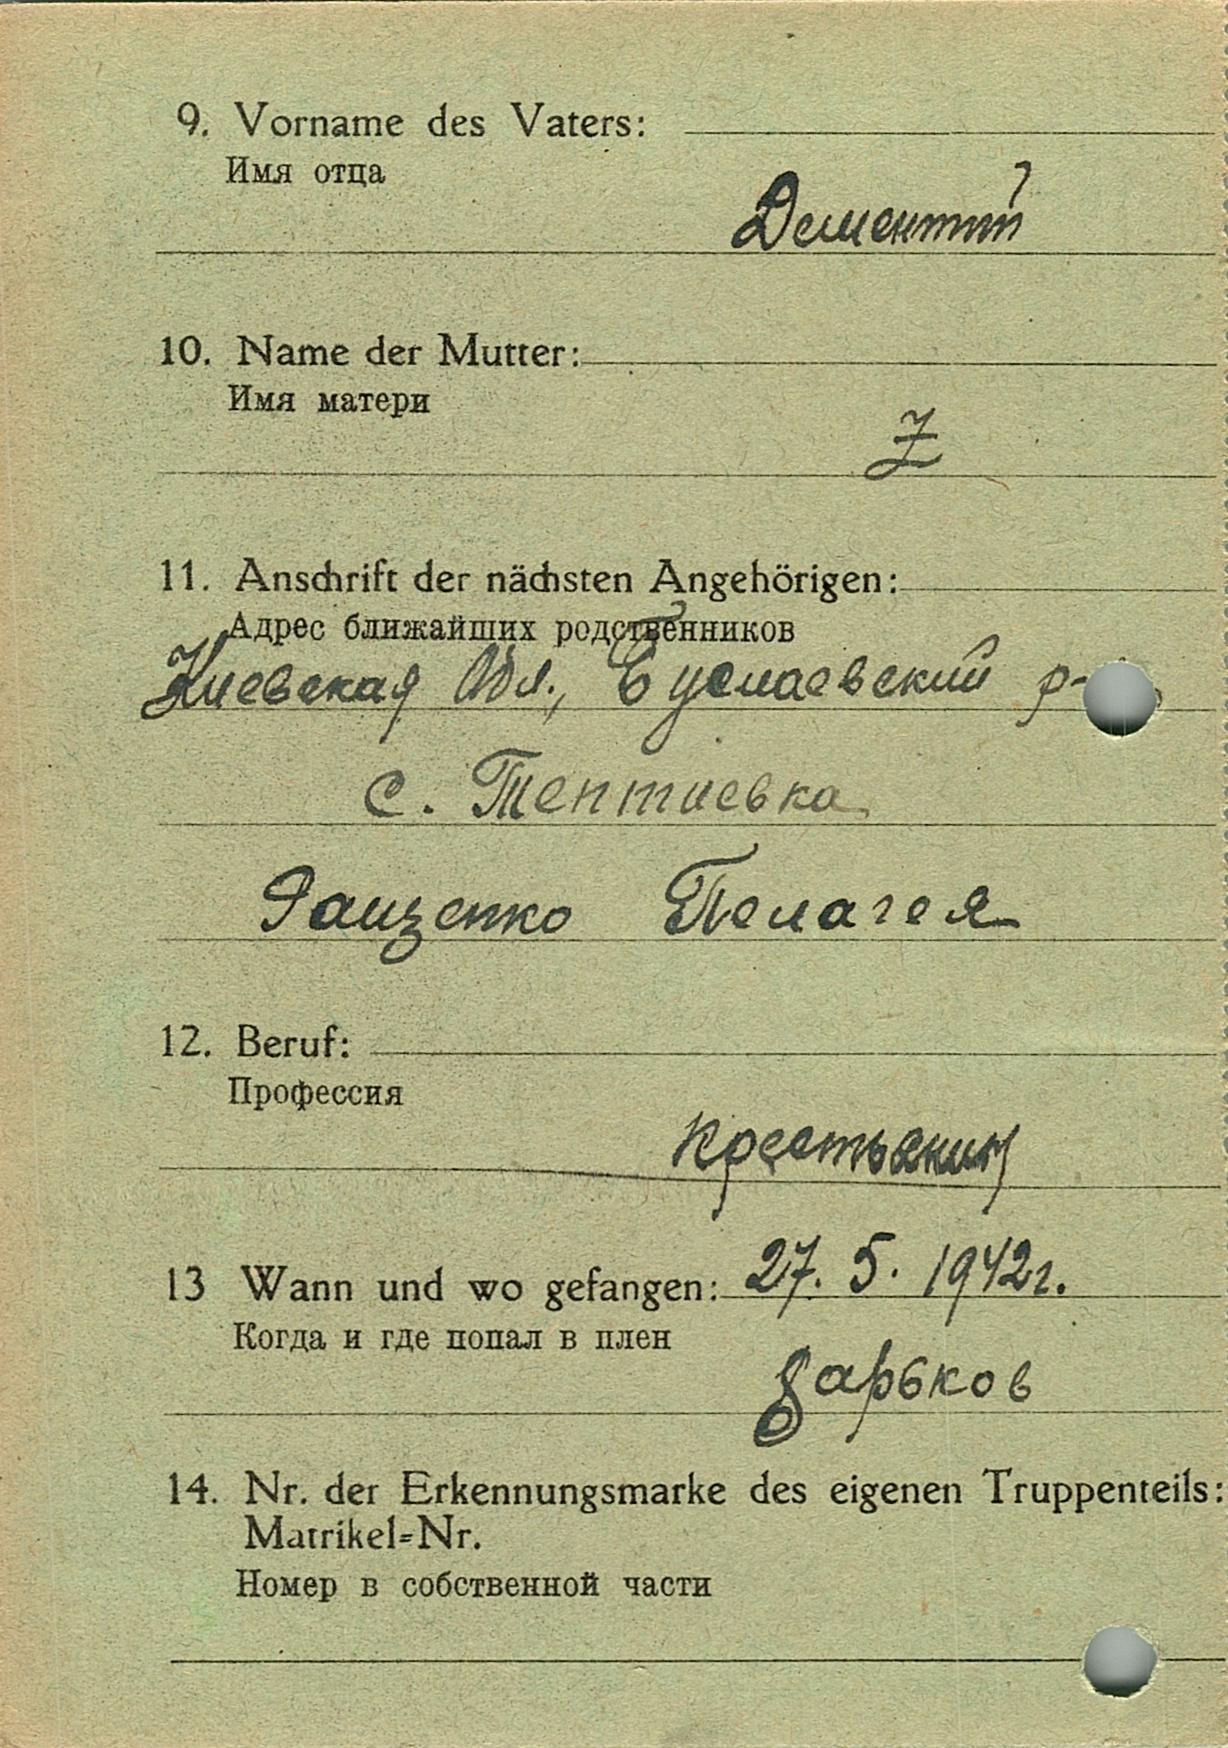 9. Vorname des Vaters:
Имя отца
Дементий
10. Name der Mutter:
Имя матери
Z
11. Anschrift der nächsten Angehörigen:
Адрес ближайших родственников
Киевская Обл., Буслаевский р-
с. Тептиевка
Ященко Пелагея
12. Beruf:
Профессия
Крестьянин
13 Wann und wo gefangen: 27. 5. 1942г.
Когда и где попал в плен
Харьков
14. Nr. der Erkennungsmarke des eigenen Truppenteils:
Matrikel=Nr.
Номер в собственной части